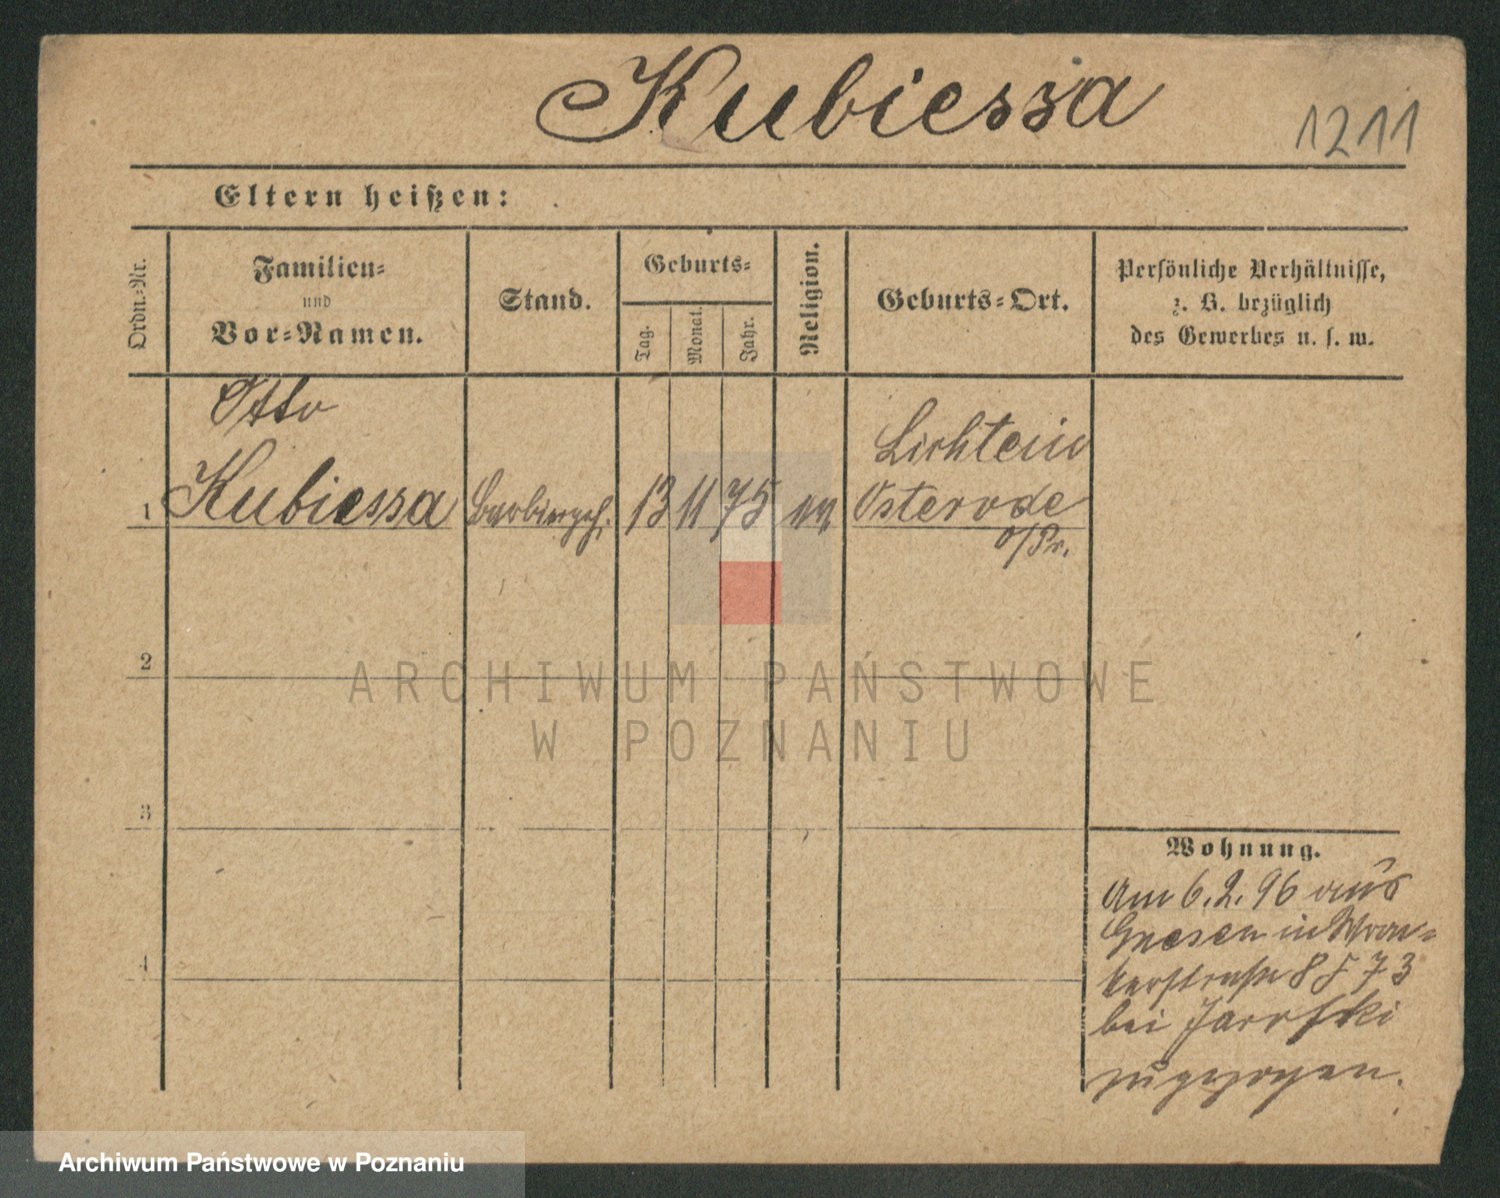 Kubiessa
1211
Eltern heißen:
Ordn.-Nr.
Familien-
und
Vor-Namen.
Stand.
Geburts-
Tag.
Monat.
Jahr.
Religion.
Geburts-Ort.
Persönliche Verhältnisse,
z. B. bezüglich
des Gewerbes u. s. w.
Otto
Lichtein
1 Kubiessa Barbiergeh. 13 11 75 Osterode
o/Pr.
2
3
4
Wohnung.
Am 6.2.96 aus
Gnesen in Wron-
kerstraße 8 F 73
bei
zugezogen.
ARCHIWUM PAŃSTWOWE
W POZNANIU
Archiwum Państwowe w Poznaniu